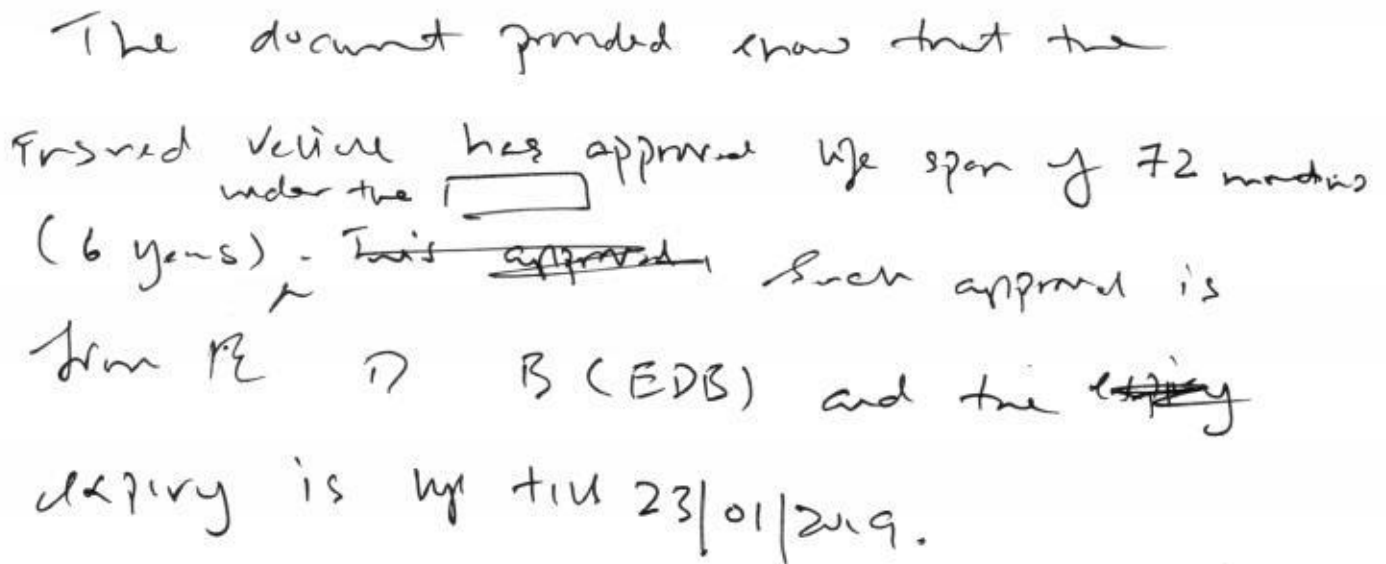 The document provided show that the
Insured vehicle has approved life span of 72 months
under the
(6 years). This approval, Such approval is
from E D B (EDB) and the expiry
expiry is up till 23/01/2019.